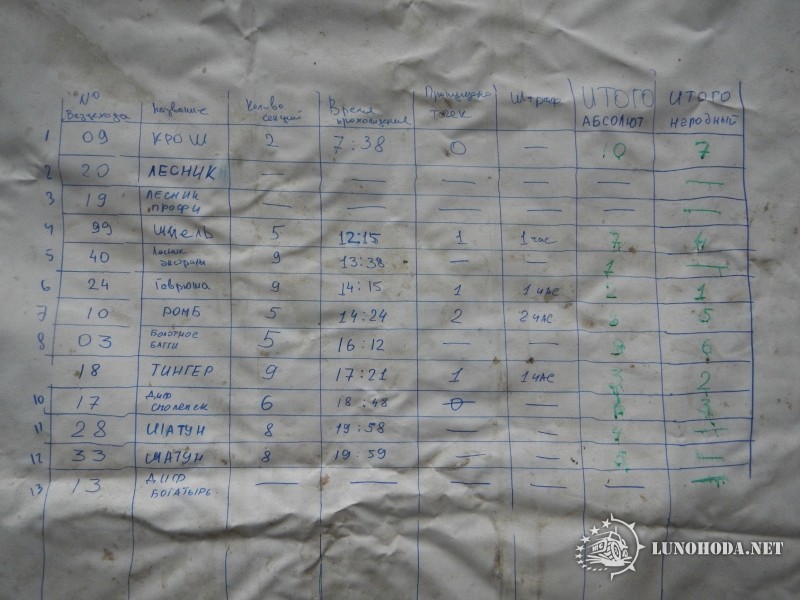 № Везехода название Кол-во секций Время прохождения Пропущено точек Штраф ИТОГО АБСОЛЮТ ИТОГО народный
1 09 КРОШ 2 7:38 0 — 10 7
2 20 ЛЕСНИК — — — — — —
3 19 ЛЕСНИК ПРОФИ — — — — — —
4 99 ШМЕЛЬ 5 12:15 1 1 час 7 4
5 40 Лесник 9 13:38 — — 1 —
6 24 Гаврюша 9 14:15 1 1 ЧАС 2 1
7 10 РОМБ 5 14:24 2 2 ЧАС 5
8 03 БОЛОТНОЕ БАГГИ 5 16:12 — — 9 6
18 ТИНГЕР 9 17:21 1 1 ЧАС 3 2
10 17 ДИФ СМОЛЕНСК 6 18:48 0 — 3
11 28 ШАТУН 8 19:58 — — 4 —
12 33 ШАТУН 8 19:59 — — 5 —
13 13 ДИФ БОГАТЫРЬ — — — — — —
LUNOHODA.NET